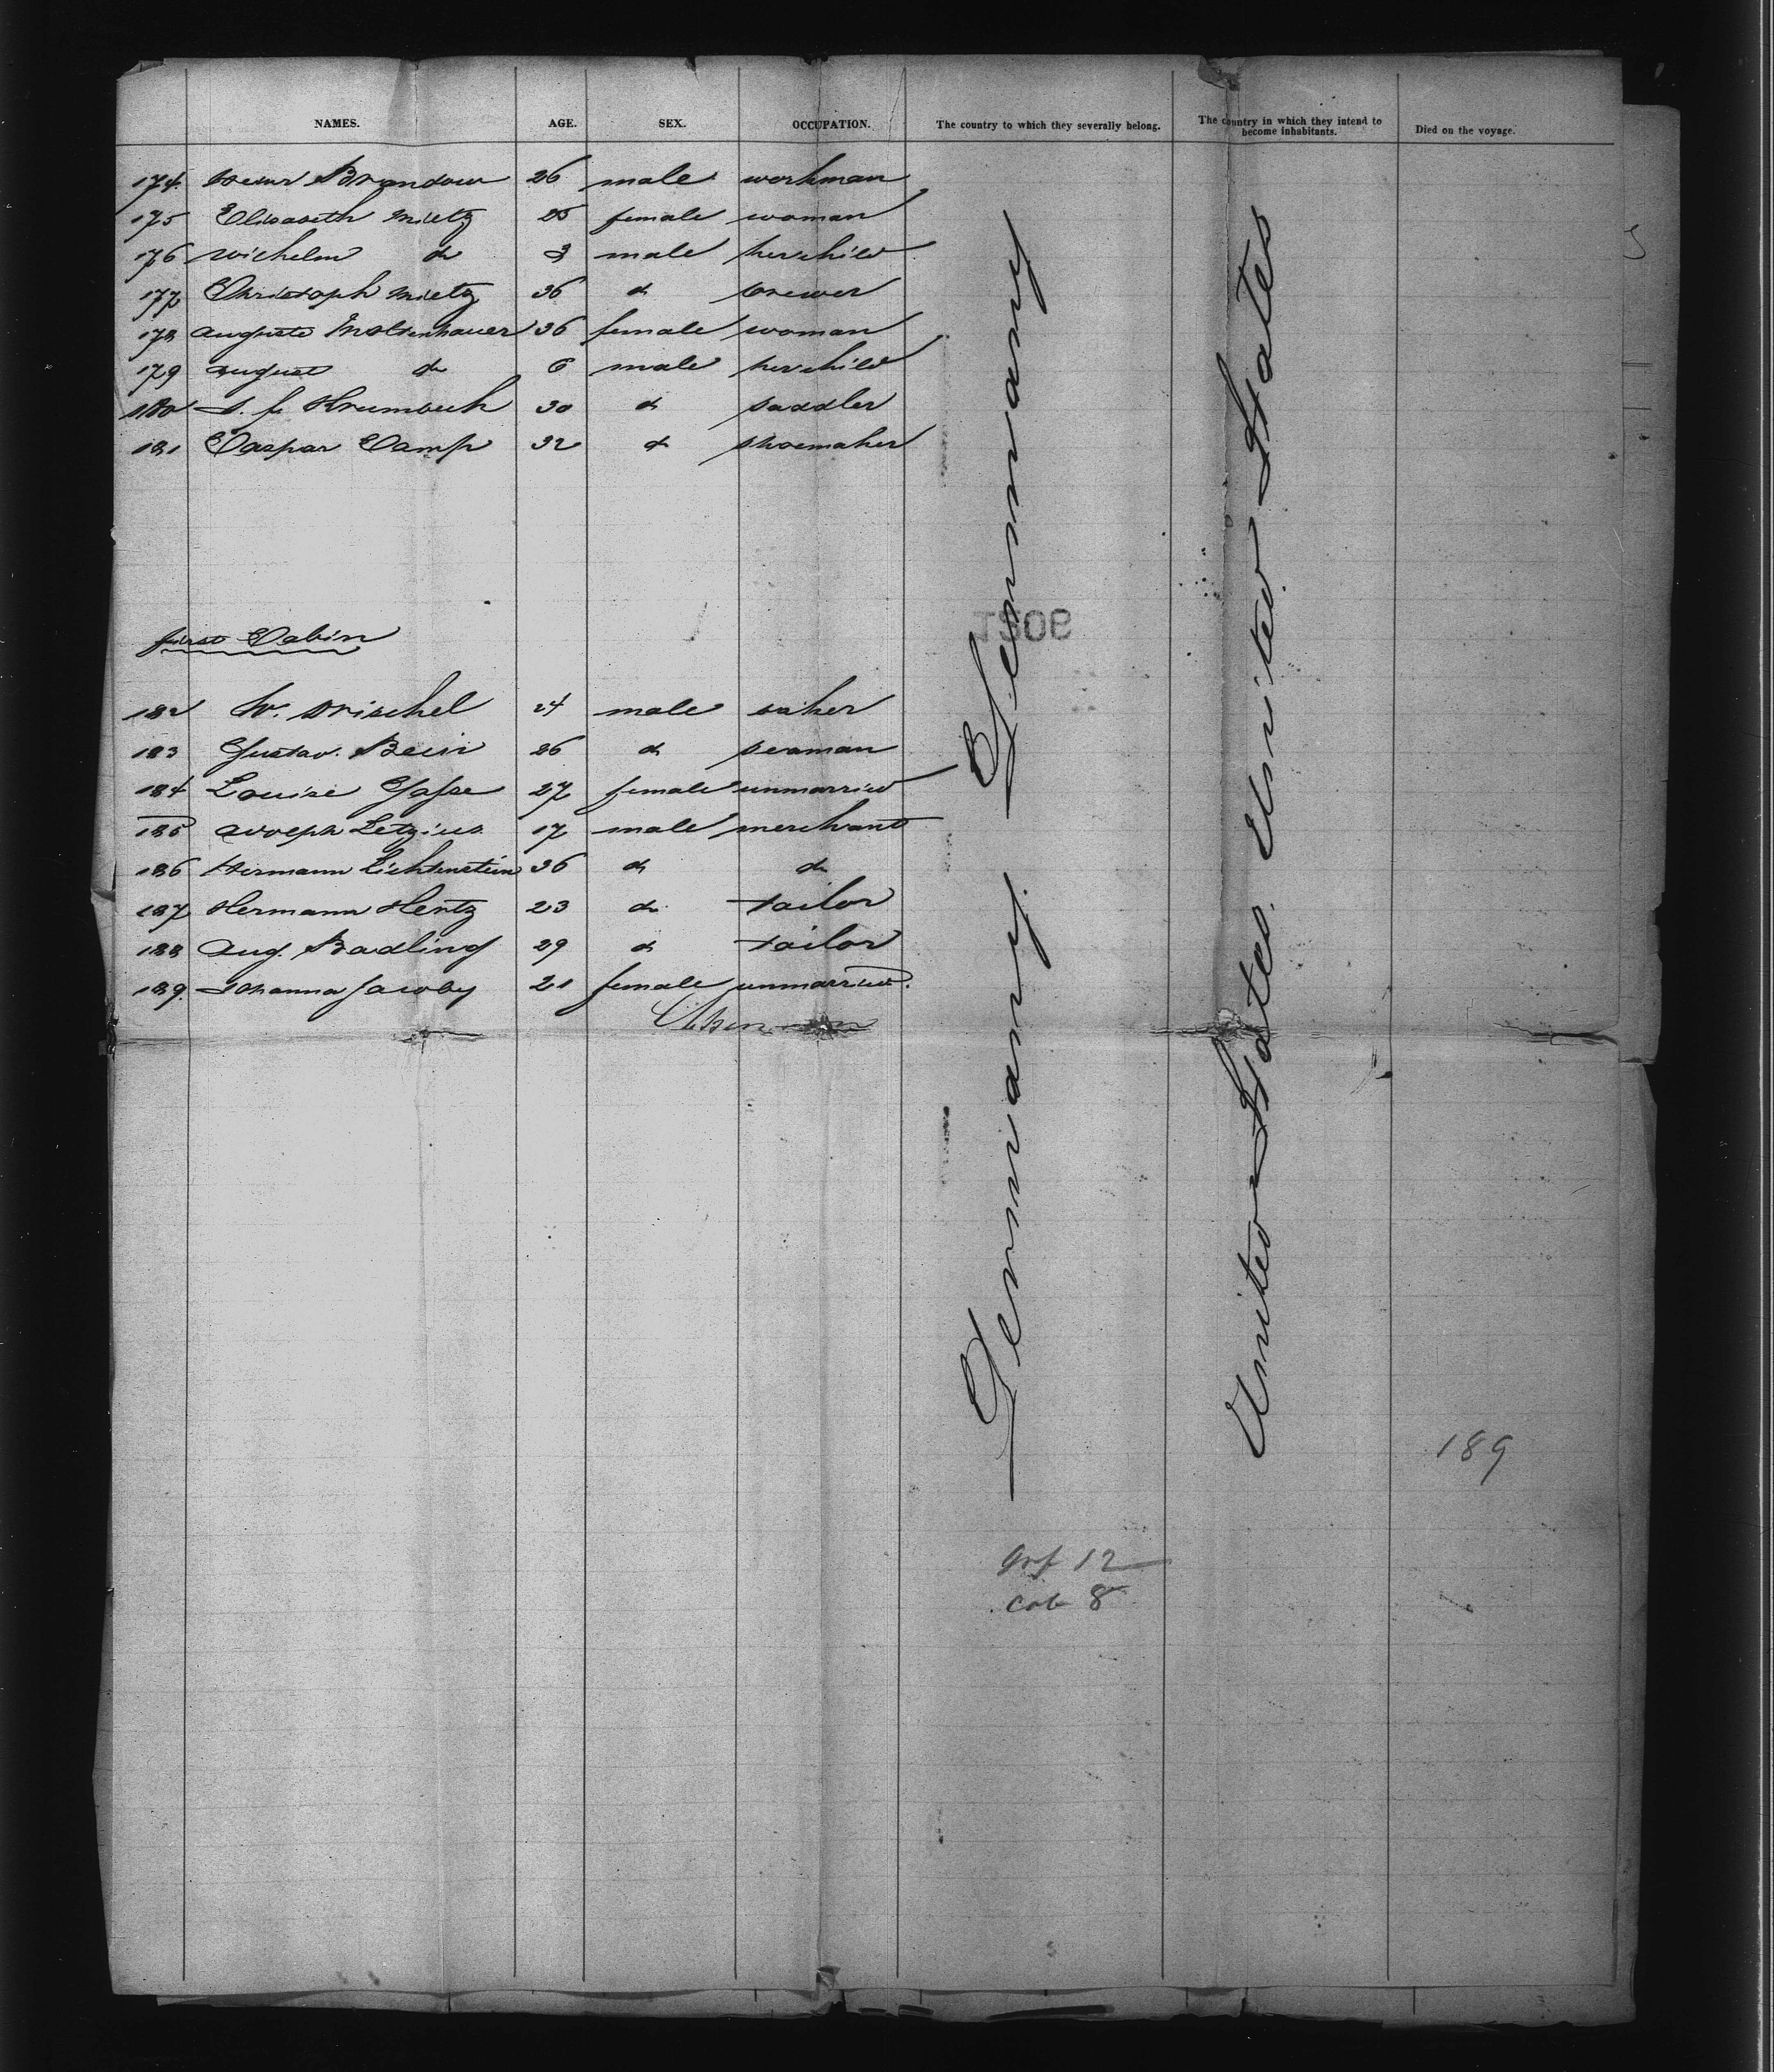 NAMES. AGE. SEX. OCCUPATION. The country to which they severally belong. The country in which they intend to become inhabitants. Died on the voyage.
174. Brandow 26 male workman
175 Elisabeth Mietz 25 female woman
176 Wilhelm do 3 male her child
177 Christoph Mietz 36 do brewer
178 Auguste Moldenhauer 36 female woman
179 August do 6 male her child
180 J. f. Krumbech 30 do saddler
181 Caspar Camp 32 do shoemaker
Germany
United States
first Cabin
182 W. Drischel 24 male baker
183 Gustav. Bein 26 do seaman
184 Louise Gasse 27 female unmarried
185 Adolph Letzius 17 male merchant
186 Hermann Lichtenstein 36 do do
187 Hermann Hentz 23 do tailor
188 Aug. Badling 29 do tailor
189. Johanna Jacoby 21 female unmarried.
Germany.
United States.
189
12
cab 8